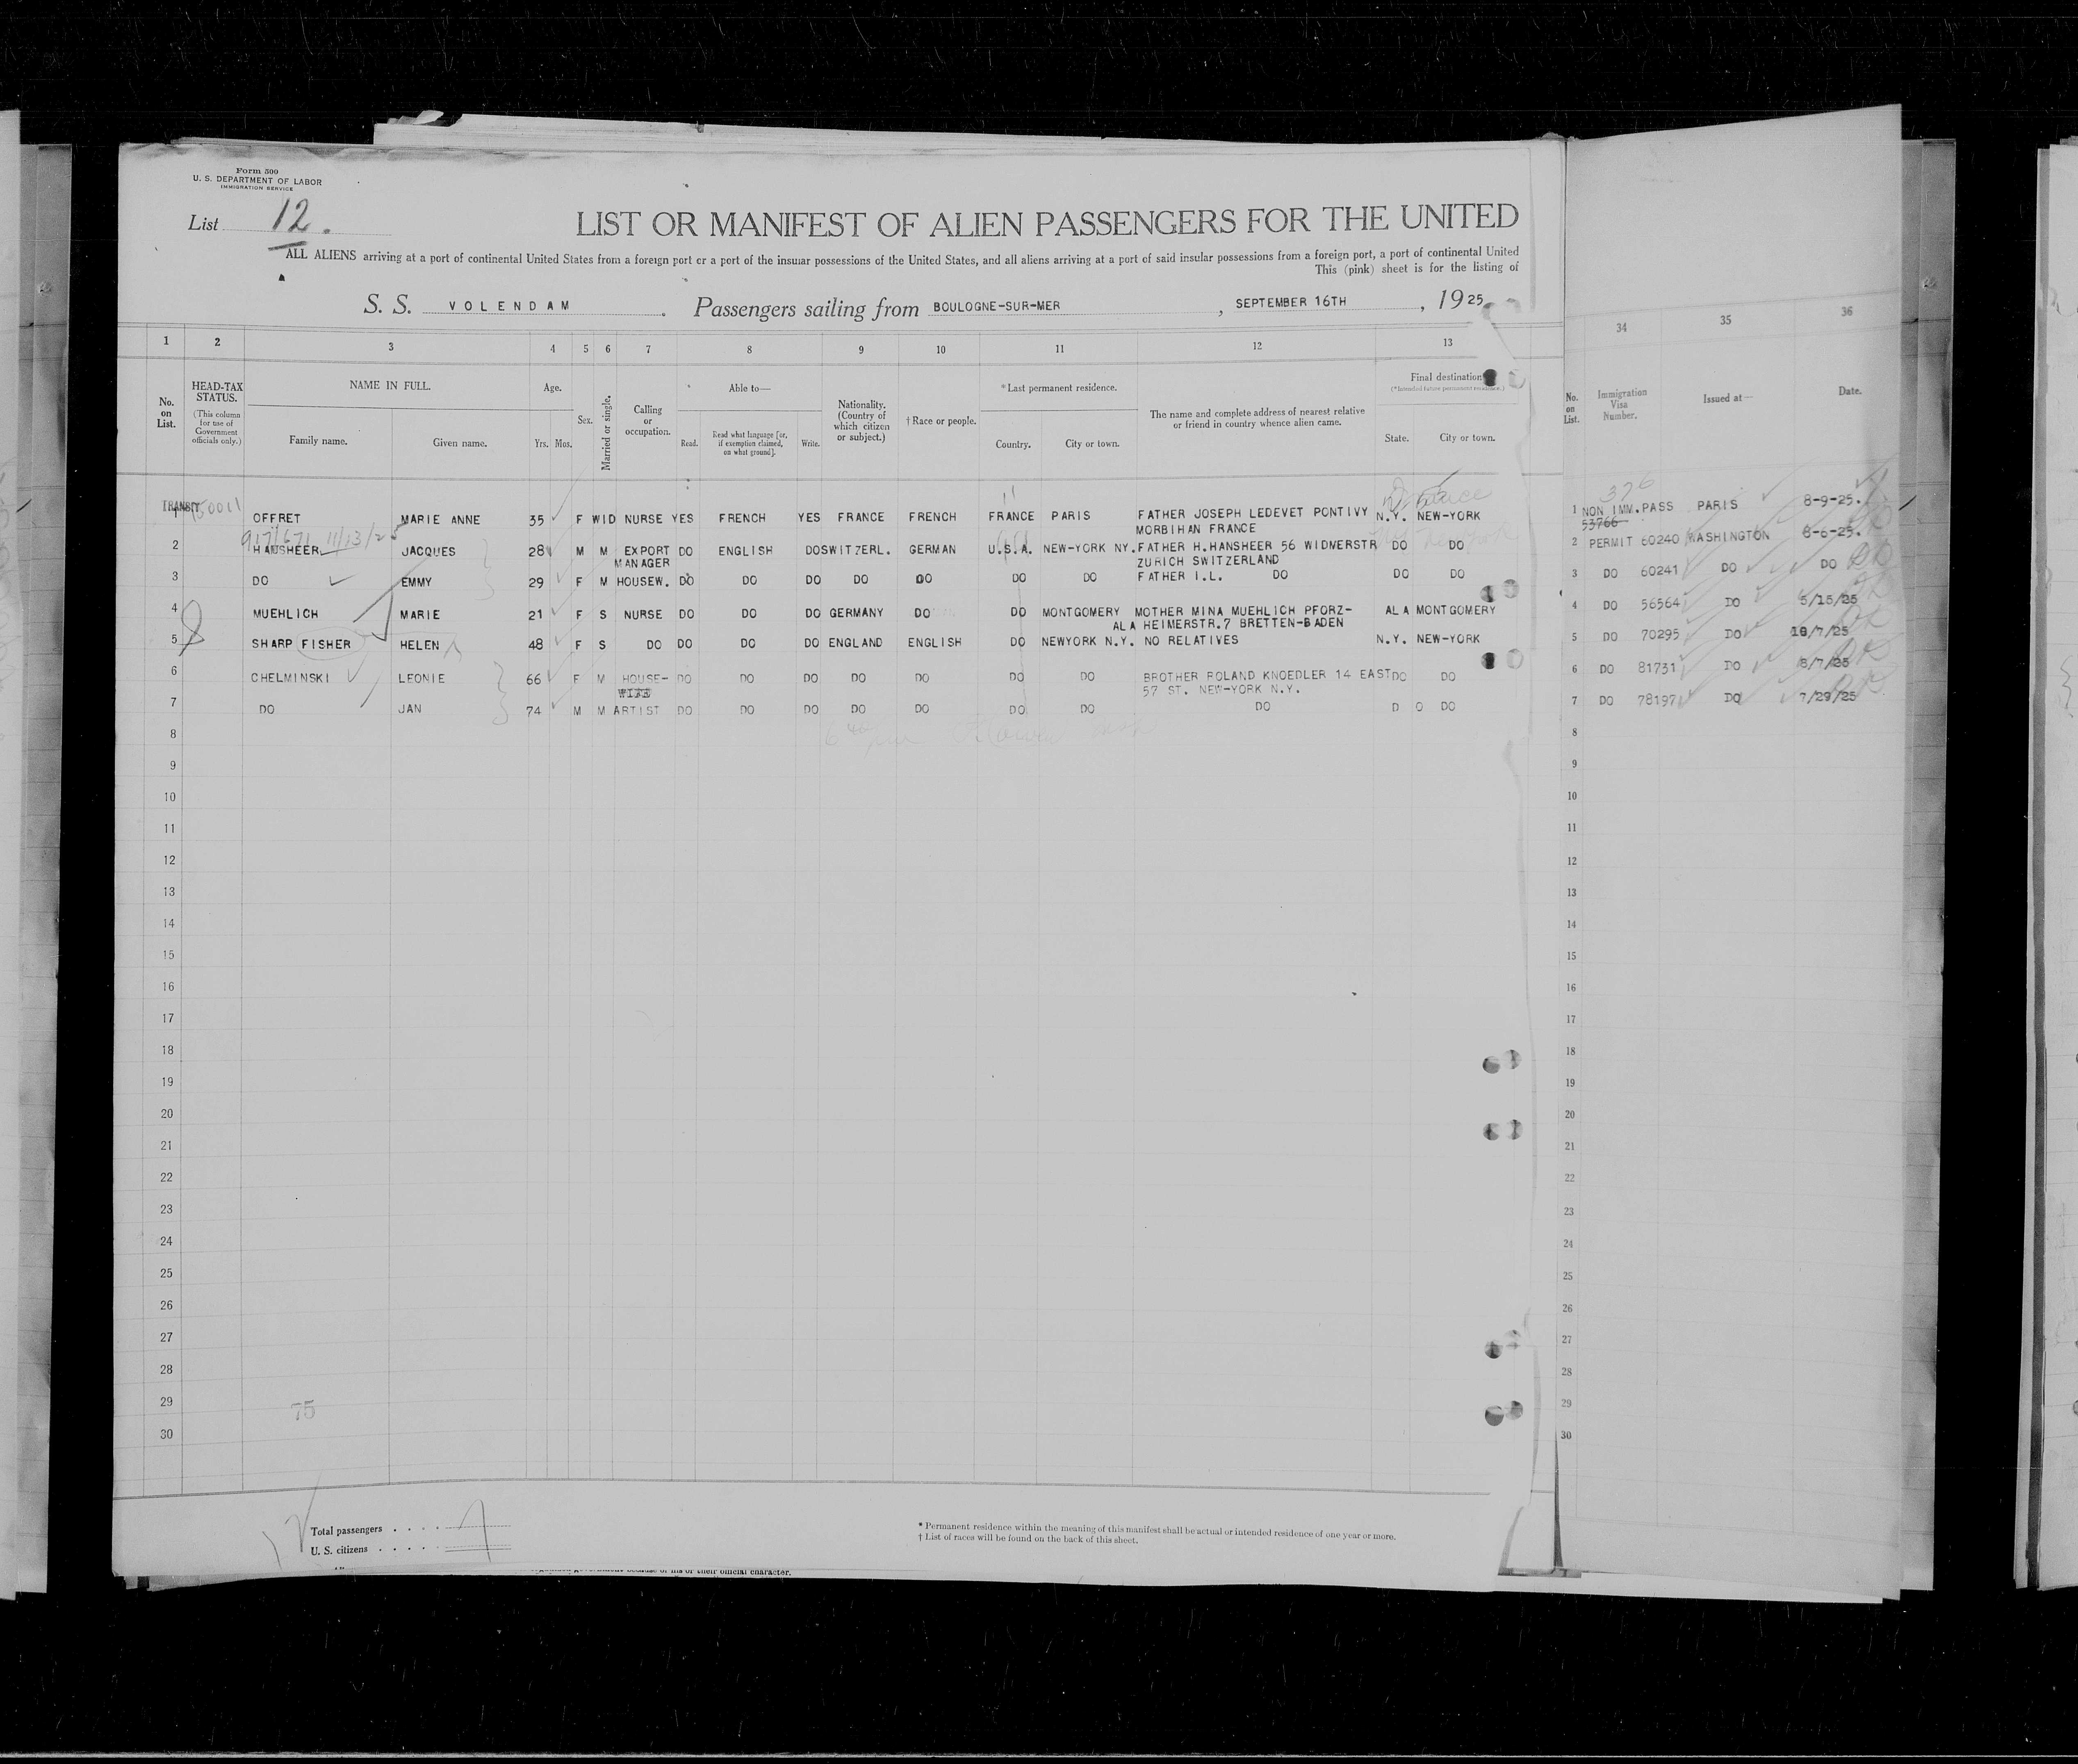 Form 500
U. S. DEPARTMENT OF LABOR
IMMIGRATION SERVICE
List 12.
LIST OR MANIFEST OF ALIEN PASSENGERS FOR THE UNITED
ALL ALIENS arriving at a port of continental United States from a foreign port or a port of the insular possessions of the United States, and all aliens arriving at a port of said insular possessions from a foreign port, a port of continental United
This (pink) sheet is for the listing of
S. S. VOLENDAM. Passengers sailing from BOULOGNE-SUR-MER, SEPTEMBER 16TH, 1925
1 2 3 4 5 6 7 8 9 10 11 12 13 34 35 36
No. on List.
HEAD-TAX STATUS.
(This column for use of Government officials only.)
NAME IN FULL.
Family name. Given name.
Age.
Yrs. Mos.
Sex.
Married or single.
Calling or occupation.
Able to—
Read. Read what language [or, if exemption claimed, on what ground]. Write.
Nationality. (Country of which citizen or subject.)
† Race or people.
*Last permanent residence.
Country. City or town.
The name and complete address of nearest relative or friend in country whence alien came.
Final destination
(*Intended future permanent residence.)
State. City or town.
No. on List.
Immigration Visa Number.
Issued at—
Date.
TRANSIT
376
1 OFFRET MARIE ANNE 35 F WID NURSE YES FRENCH YES FRANCE FRENCH FRANCE PARIS FATHER JOSEPH LEDEVET PONTIVY N.Y. NEW-YORK 1 NON IMM.PASS PARIS 8-9-25.
MORBIHAN FRANCE 53766
917/671 11/13/25
2 HAUSHEER JACQUES 28 M M EXPORT DO ENGLISH DO SWITZERL. GERMAN U.S.A. NEW-YORK NY. FATHER H.HANSHEER 56 WIDMERSTR DO DO 2 PERMIT 60240 WASHINGTON 8-6-25.
MANAGER ZURICH SWITZERLAND
3 DO EMMY 29 F M HOUSEW. DO DO DO DO DO DO DO FATHER I.L. DO DO DO 3 DO 60241 DO DO
4 MUEHLICH MARIE 21 F S NURSE DO DO DO GERMANY DO DO MONTGOMERY MOTHER MINA MUEHLICH PFORZ- ALA MONTGOMERY 4 DO 56564 DO 5/15/25
ALA HEIMERSTR.7 BRETTEN-BADEN
5 SHARP FISHER HELEN 48 F S DO DO DO DO ENGLAND ENGLISH DO NEWYORK N.Y. NO RELATIVES N.Y. NEW-YORK 5 DO 70295 DO 10/7/25
6 CHELMINSKI LEONIE 66 F M HOUSE- DO DO DO DO DO DO DO BROTHER ROLAND KNOEDLER 14 EAST DO DO 6 DO 81731 DO 8/7/25
WIFE 57 ST. NEW-YORK N.Y.
7 DO JAN 74 M M ARTIST DO DO DO DO DO DO DO DO D O DO 7 DO 78197 DO 7/29/25
8 8
9 9
10 10
11 11
12 12
13 13
14 14
15 15
16 16
17 17
18 18
19 19
20 20
21 21
22 22
23 23
24 24
25 25
26 26
27 27
28 28
29 29
75
30 30
Total passengers . . . . 7
U. S. citizens . . . . .
* Permanent residence within the meaning of this manifest shall be actual or intended residence of one year or more.
† List of races will be found on the back of this sheet.
because of his or their official character.